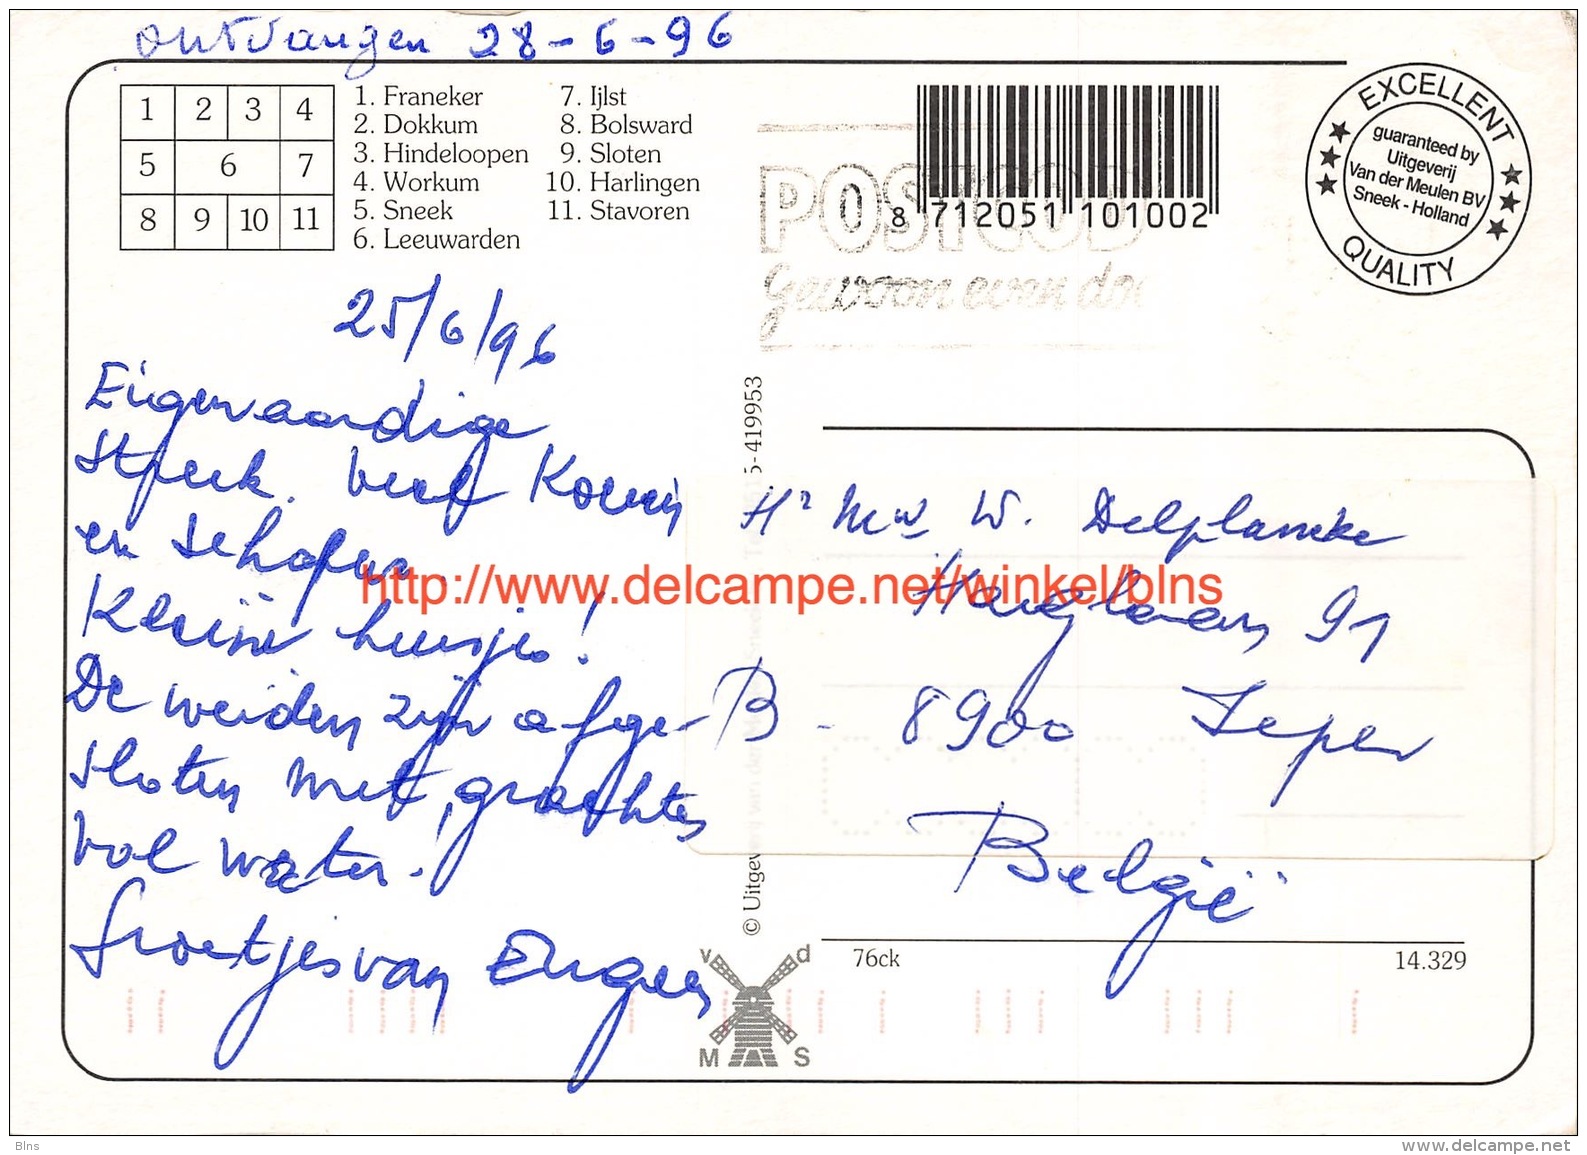 ontvangen 28-6-96
1 2 3 4
5 6 7
8 9 10 11
1. Franeker
2. Dokkum
3. Hindeloopen
4. Workum
5. Sneek
6. Leeuwarden
7. Ijlst
8. Bolsward
9. Sloten
10. Harlingen
11. Stavoren
POSTCOD
Gewoon even do
8 712051 101002
EXCELLENT
guaranteed by
Uitgeverij
Van der Meulen BV
Sneek - Holland
QUALITY
25/6/96
Eigenaardige
streek. Veel Koeien
en schapen.
Kleine huisjes!
De weiden zijn afge-
sloten met grachten
vol water.
Groetjes van
© Uitgeverij van der 5-419953
Hr Mw W. Delplancke
Haiglaan 91
B - 8900 Ieper
België
http://www.delcampe.net/winkel/blns
v d
M S
76ck
14.329
Blns
www.delcampe.net